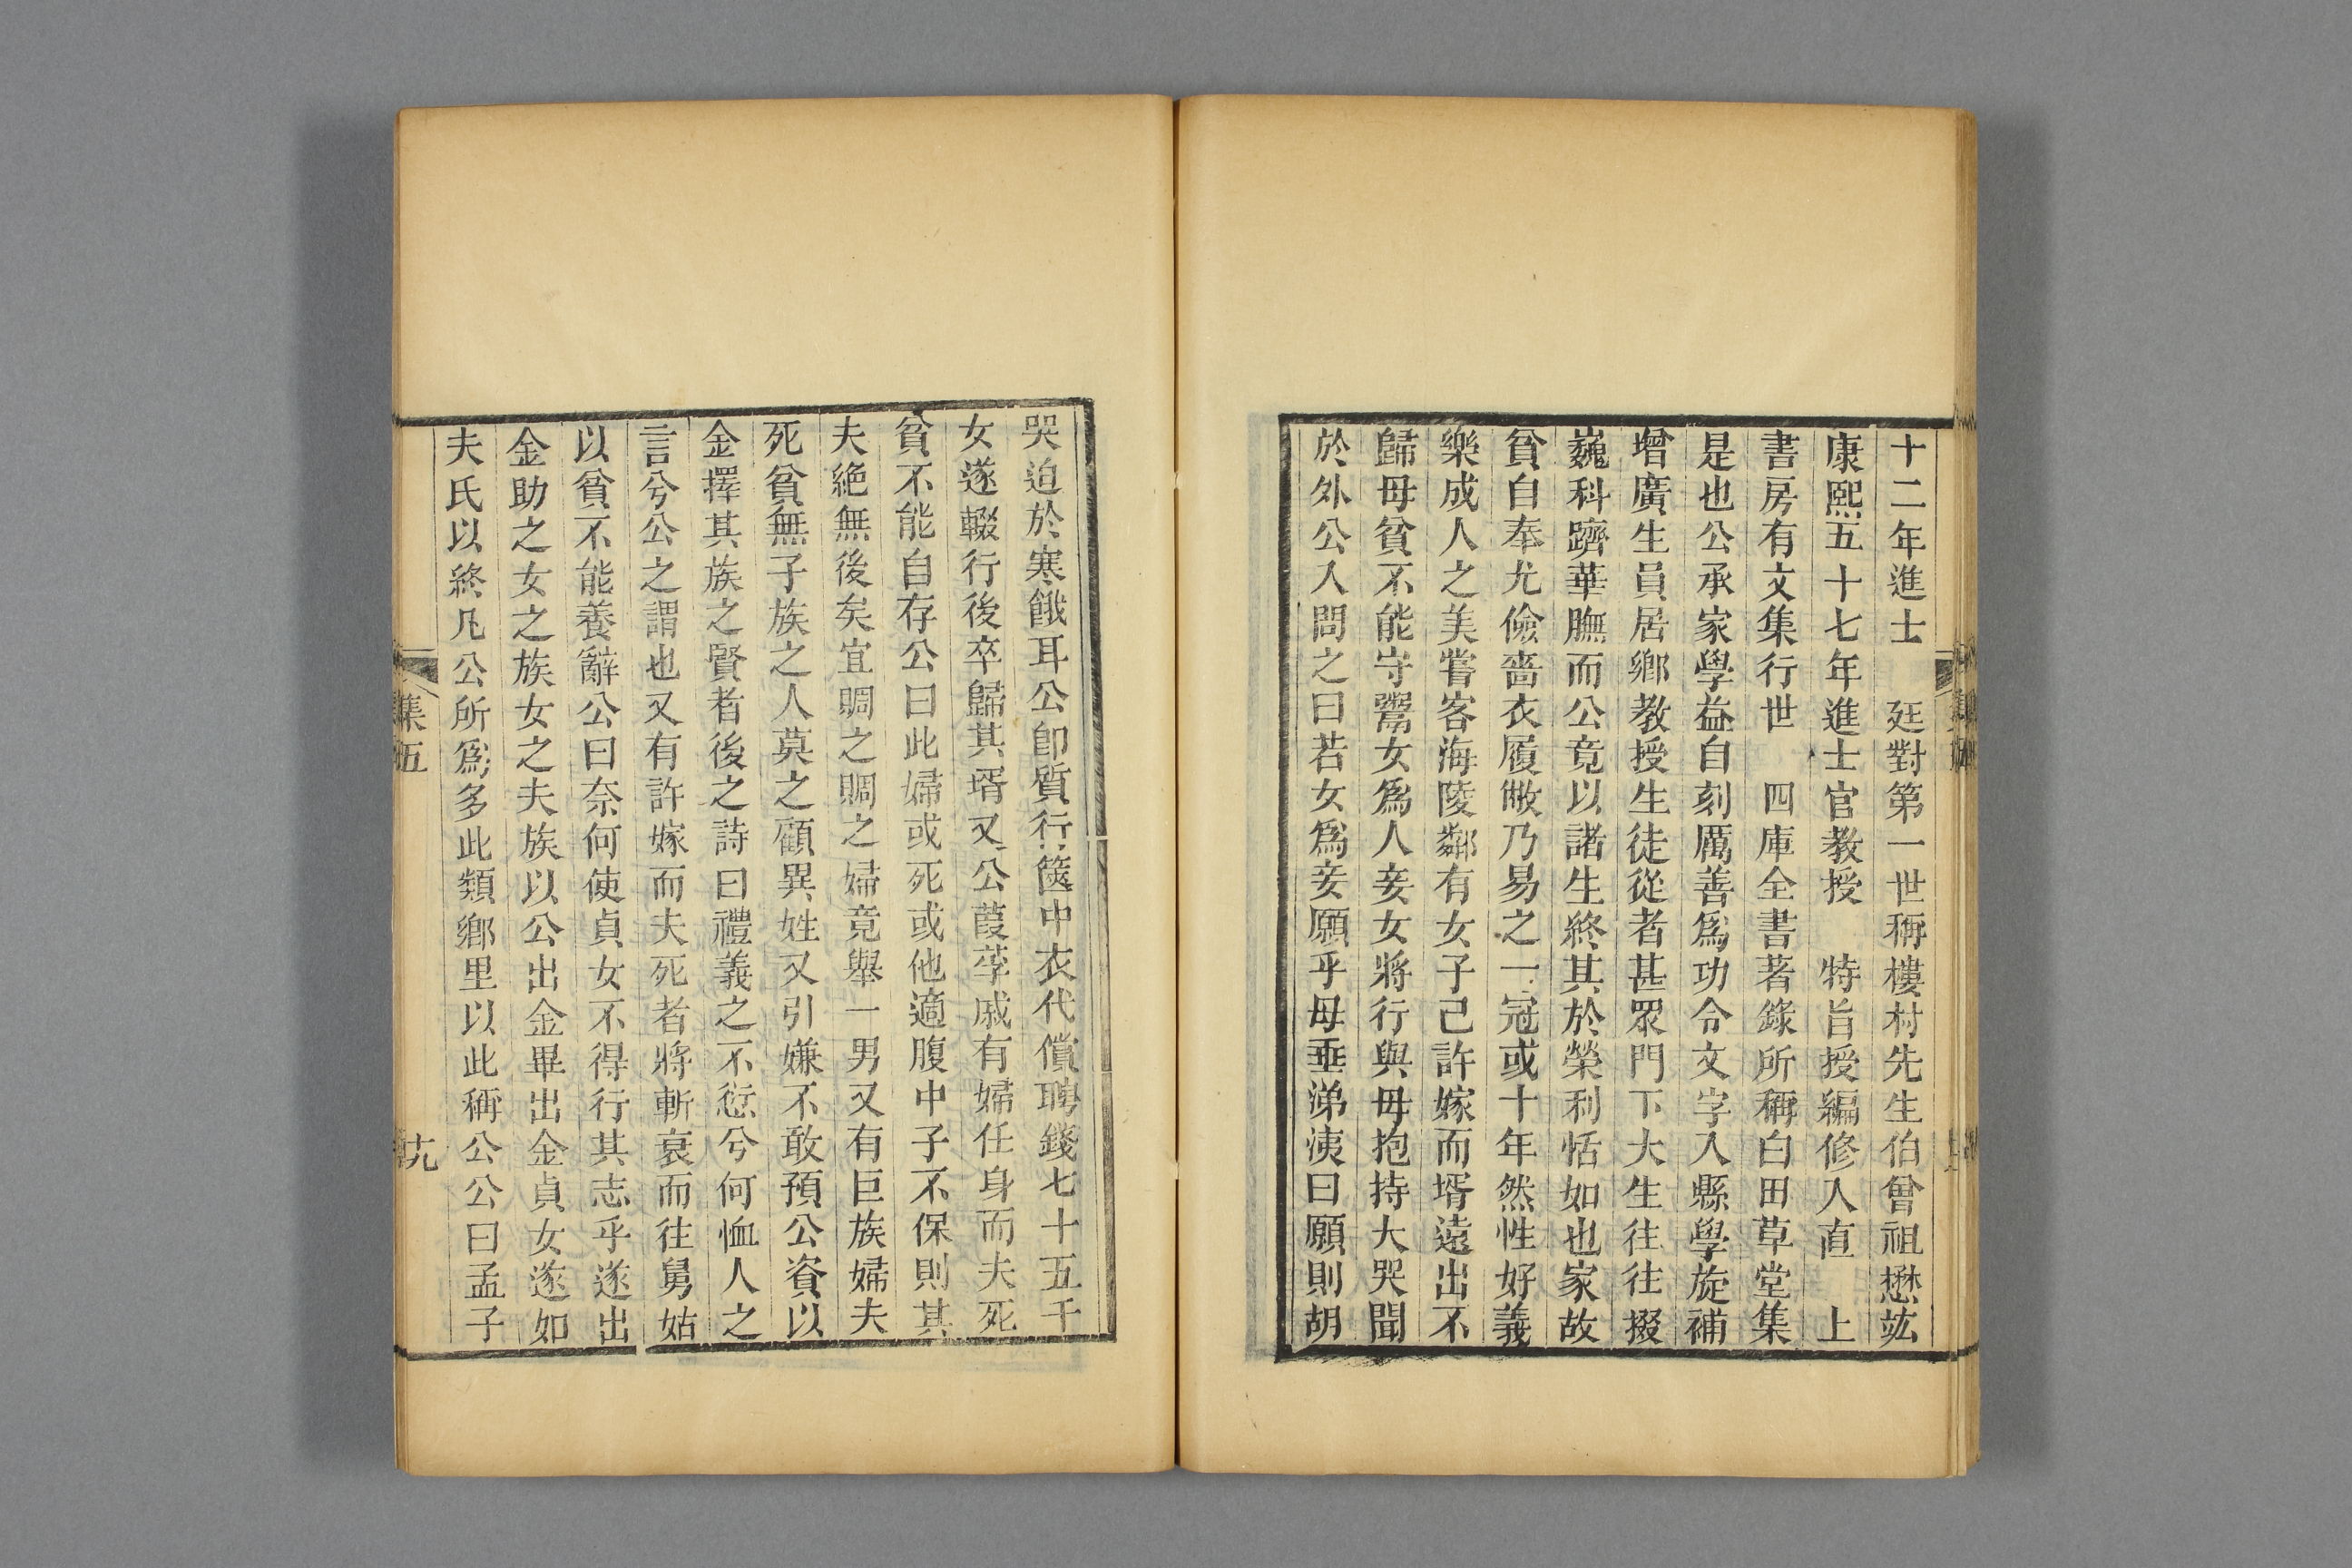 十二年進士　廷對第一世稱樓村先生伯曾祖懋竑
康熙五十七年進士官教授　特旨授編修入直　上
書房有文集行世　四庫全書著錄所稱白田草堂集
是也公承家學益自刻厲善爲功令文字入縣學旋補
增廣生員居鄉教授生徒從者甚眾門下大生往往掇
巍科躋華膴而公竟以諸生終其於榮利恬如也家故
貧自奉尤儉嗇衣履敝乃易之一冠或十年然性好義
樂成人之美嘗客海陵鄰有女子已許嫁而壻遠出不
歸母貧不能守鬻女爲人妾女將行與母抱持大哭聞
於外公入問之曰若女爲妾願乎母垂涕洟曰願則胡
哭迫於寒餓耳公卽質行篋中衣代償聘錢七十五千
女遂輟行後卒歸其壻又公葭莩戚有婦任身而夫死
貧不能自存公曰此婦或死或他適腹中子不保則其
夫絶無後矣宜賙之賙之婦竟舉一男又有巨族婦夫
死貧無子族之人莫之顧異姓又引嫌不敢預公資以
金擇其族之賢者後之詩曰禮義之不愆兮何恤人之
言兮公之謂也又有許嫁而夫死者將斬衰而往舅姑
以貧不能養辭公曰奈何使貞女不得行其志乎遂出
金助之女之族女之夫族以公出金畢出金貞女遂如
夫氏以終凡公所爲多此類鄉里以此稱公公曰孟子
集五
十九